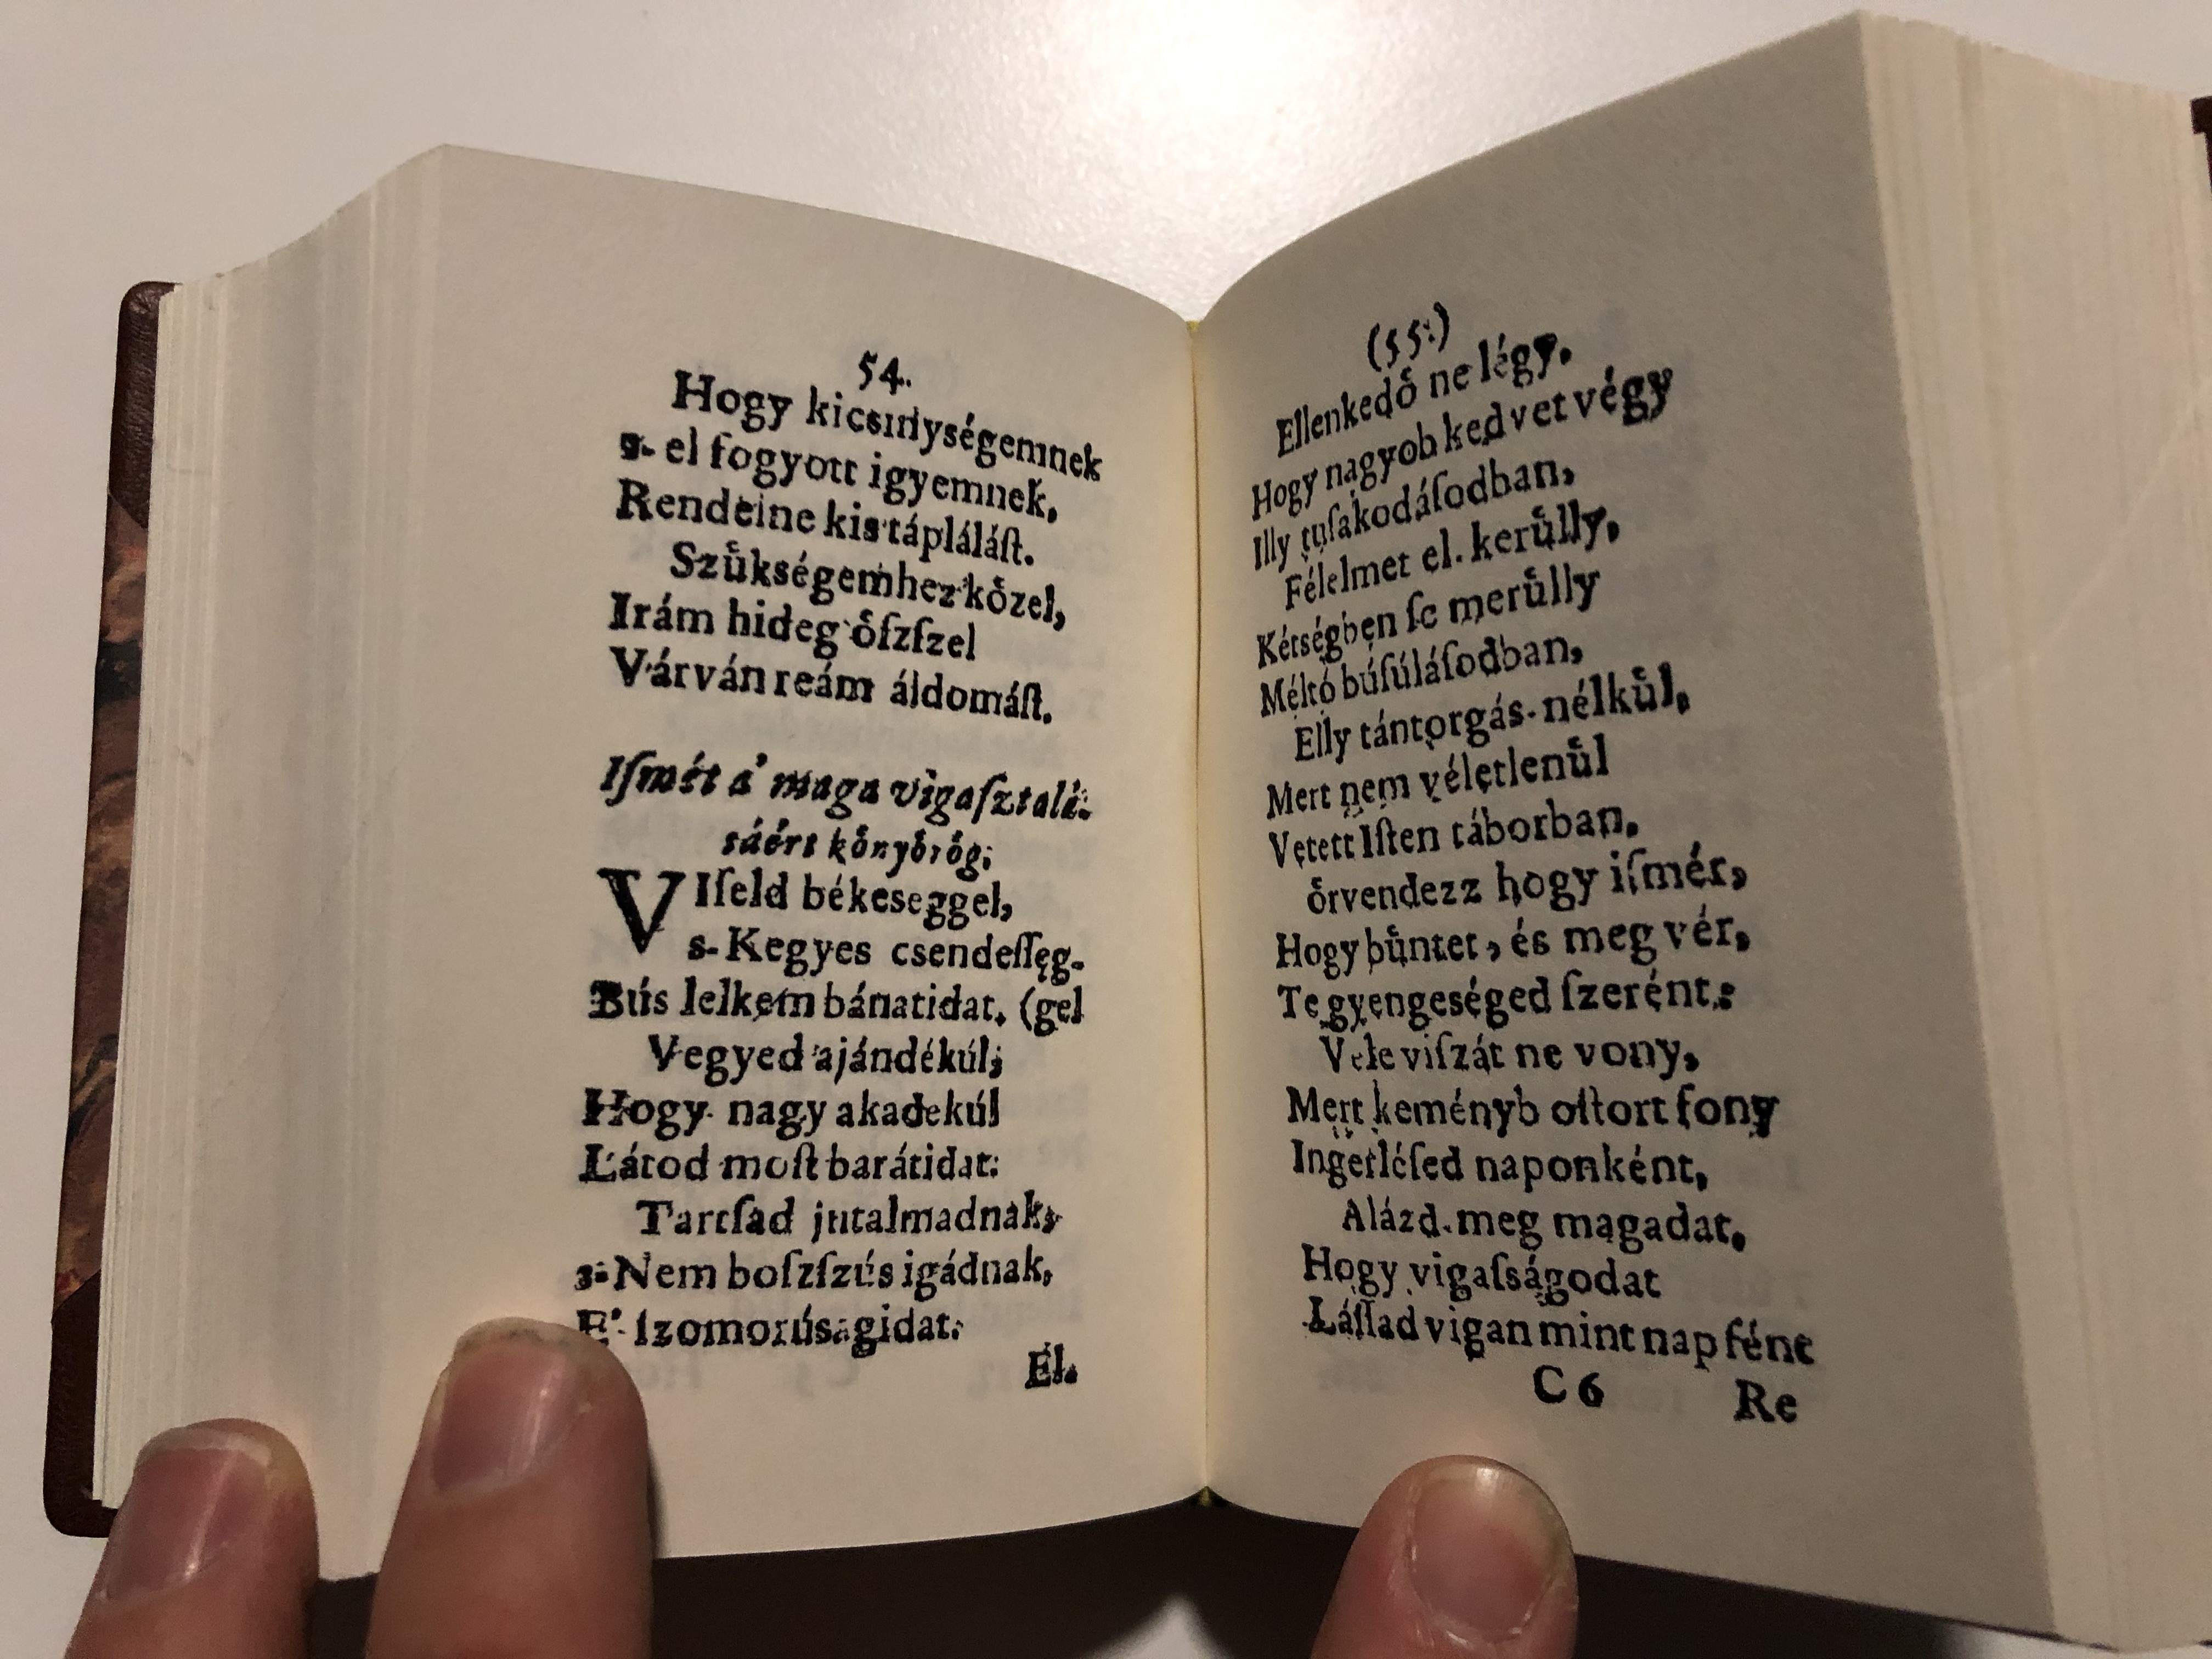 54.
Hogy kicsinységemnek
s- el fogyott igyemnek,
Rendeine kis tápláláſt.
Szűkségemhez kőzel,
Irám hideg őſzſzel
Várván reám áldomáſt.
Iſmét a' maga vigaſztalá-
sáért kőnyőrőg;
VIſeld békeseggel,
s- Kegyes csendeſſęg-
Bús lelkem bánatidat. (gel
Vegyed ajándékúl;
Hogy nagy akadekúl
Látod moſt barátidat:
Tartſad jutalmadnak,
s- Nem boſzſzús igádnak,
E' ſzomorúságidat.
El.
(55.)
Ellenkedő ne légy,
Hogy nagyob kedvet végy
Illy tuſakodáſodban,
Félelmet el. kerűlly,
Kétségben ſe merűlly
Méltó búſúláſodban,
Elly tántorgás-nélkűl,
Mert nem véletlenűl
Vetett Iſten táborban.
őrvendezz hogy iſmér,
Hogy bűntet, és meg vér,
Te gyengeséged ſzerént:
Vele viſzát ne vony,
Mert keményb oſtort fony
Ingerléſed naponként,
Alázd meg magadat,
Hogy vigaſságodat
Láſſad vigan mint nap fént
C 6
Re